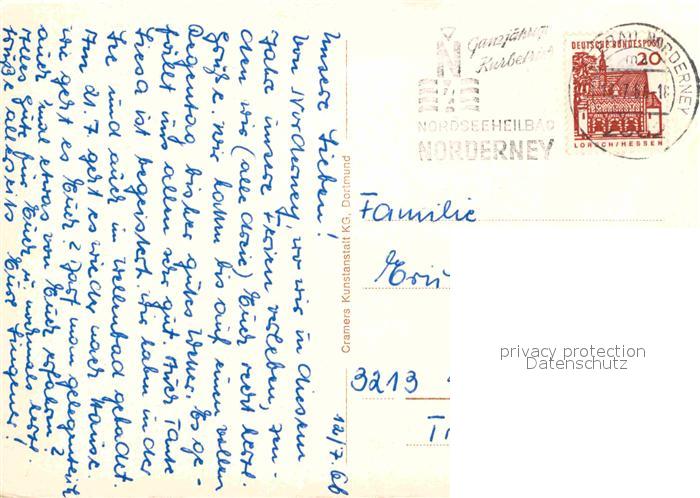 12/7. 66
Unsere Lieben!
Von Norderney, wo wir in diesem
Jahr unsere Ferien verleben, sen-
den wir (alle drei) Euch recht herzl.
Grüße. Wir hatten bis auf einen vollen
Regentag bisher gutes Wetter. Es ge-
fällt uns allen sehr gut. Auch Tante
Liesa ist begeistert. Wir haben in der
See und auch im Wellenbad gebadet.
Am 21. 7 geht es wieder nach Hause.
Wie geht es Euch? Darf man gelegentlich
auch mal etwas von Euch erfahren?
Alles Gute für Euch u. nochmals herzl.
Grüße allerseits
Cramers Kunstanstalt KG, Dortmund
Ganzjährig
Kurbetrieb
NORDSEEHEILBAD
NORDERNEY
DEUTSCHE BUNDESPOST
20
LORSCH/HESSEN
NORDERNEY
Familie
3213
privacy protection
Datenschutz